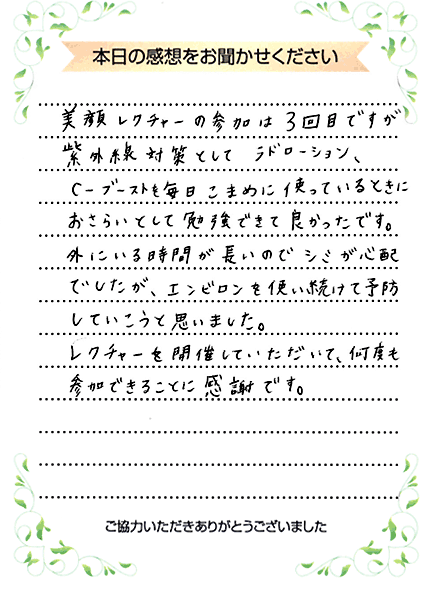 本日の感想をお聞かせください
美顔レクチャーの参加は3回目ですが
紫外線対策として ラドローション、
Cーブーストを毎日こまめに使っているときに
おさらいとして勉強できて良かったです。
外にいる時間が長いのでシミが心配
でしたが、エンビロンを使い続けて予防
していこうと思いました。
レクチャーを開催していただいて、何度も
参加できることに感謝です。
ご協力いただきありがとうございました